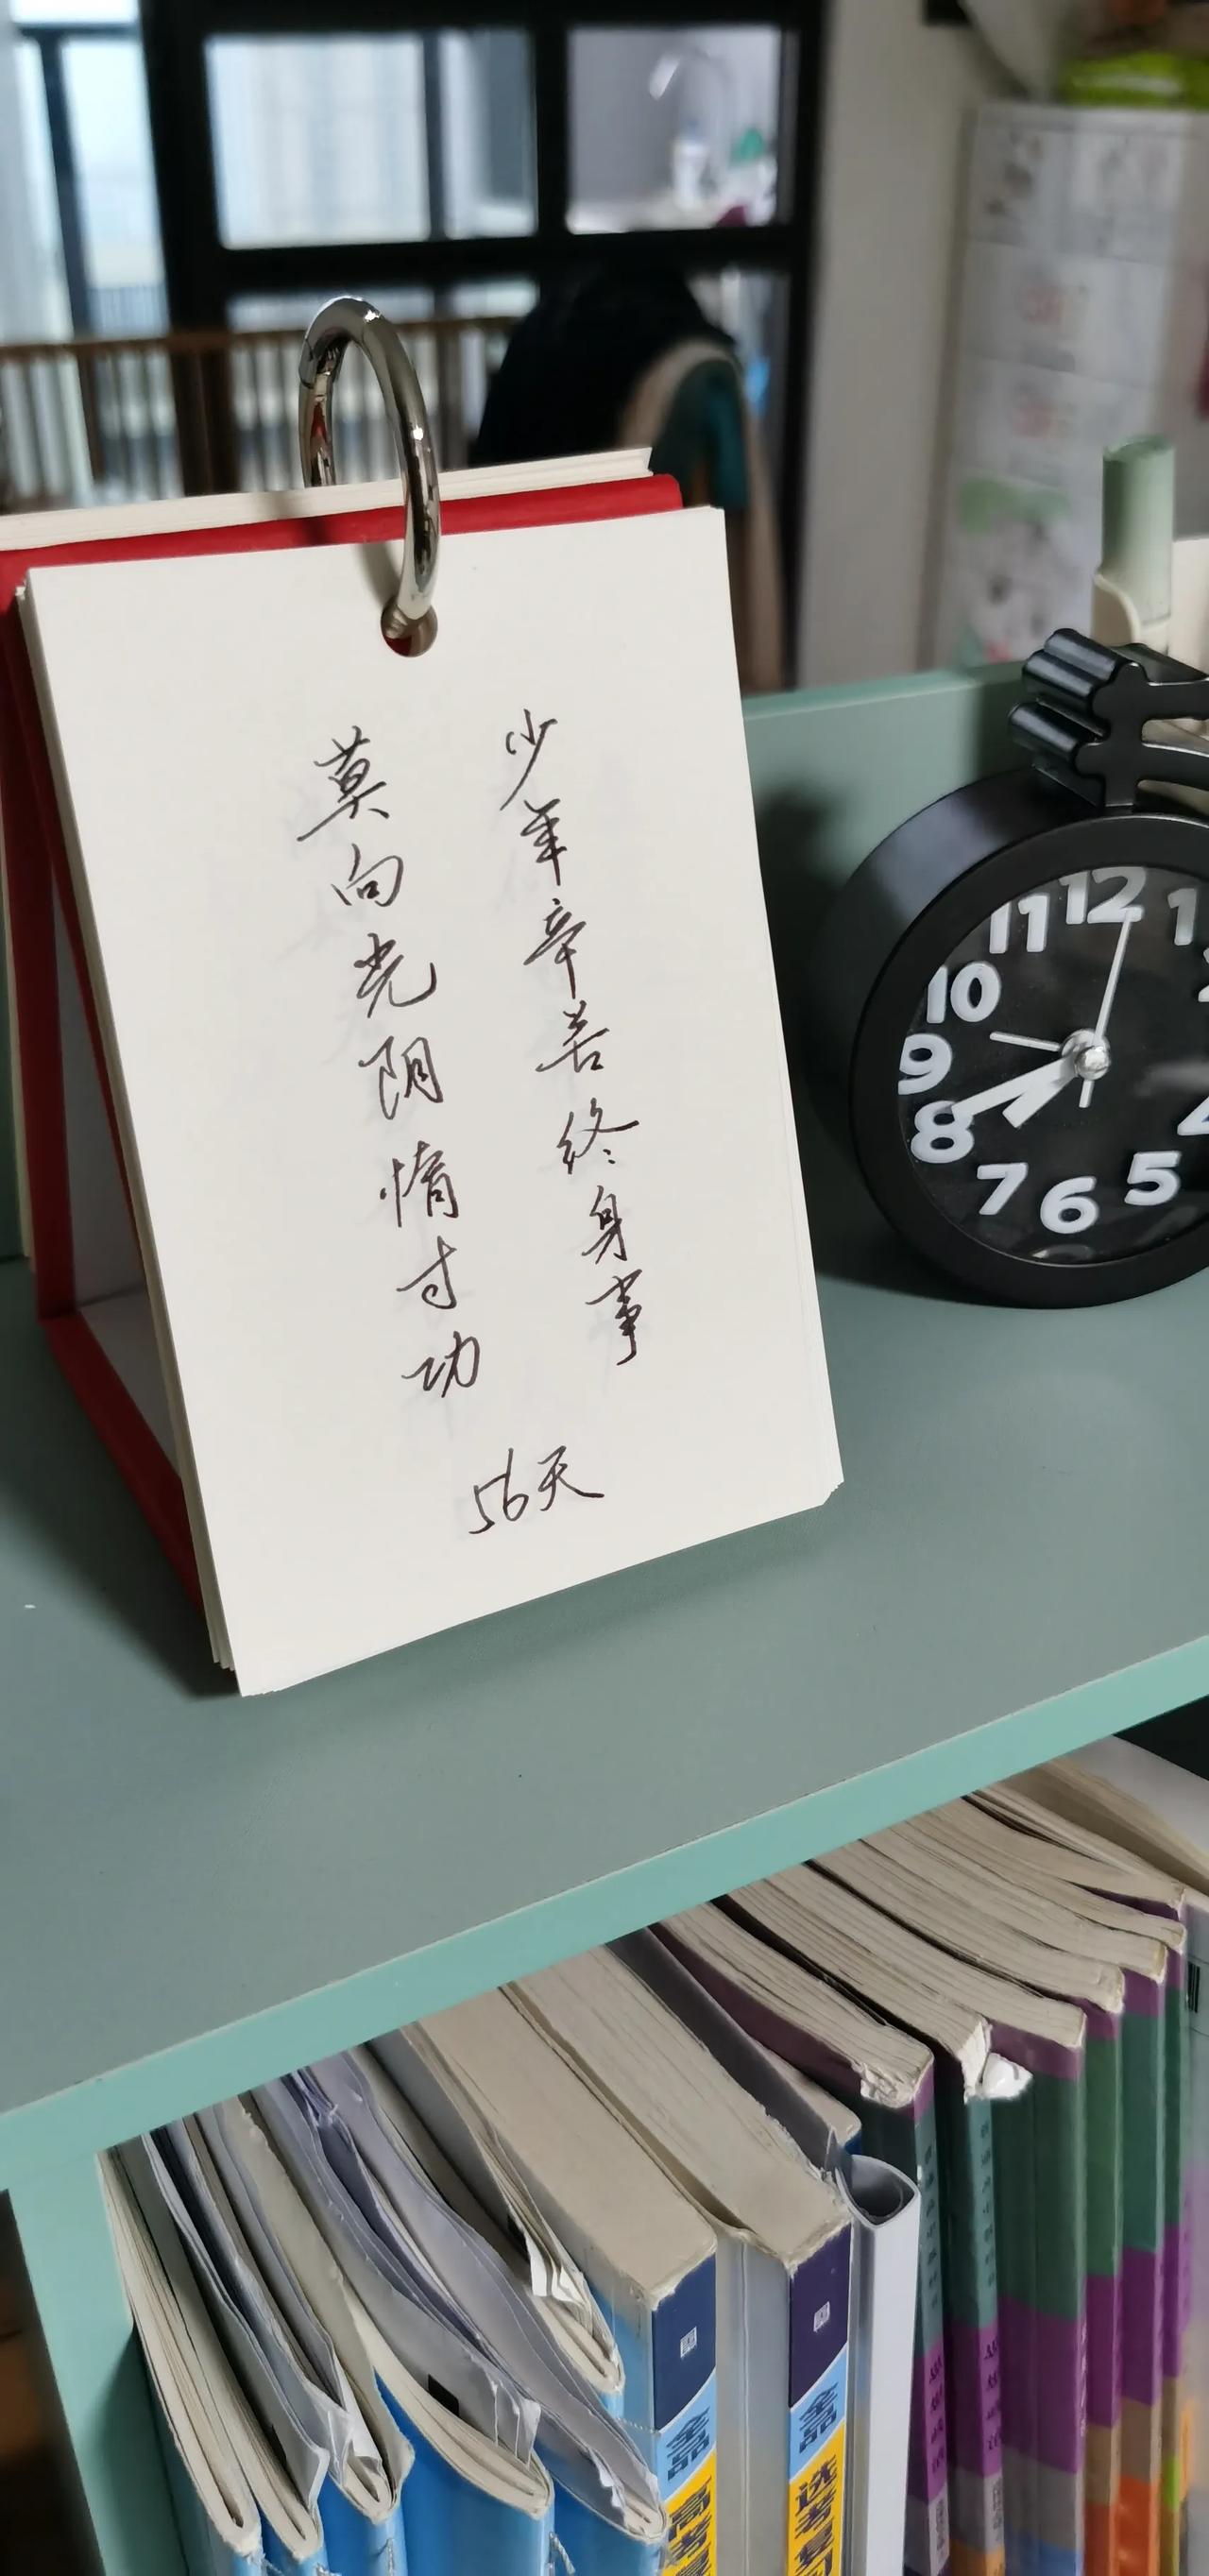 少年辛苦终身事
莫向光阴惰寸功
56天
12
1
11
10
9
8
7
6
5
4
全品
高考
全品
选考复习